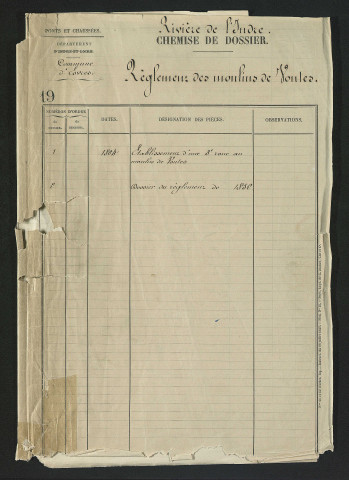 PONTS ET CHAUSSÉES.
DÉPARTEMENT
D'INDRE-ET-LOIRE.
Commune
d'Esvres.
Rivière de l'Indre.
CHEMISE DE DOSSIER.
Règlement des moulins de Vontes.
19
NUMÉROS D'ORDRE
DATES.
DÉSIGNATION DES PIÈCES.
OBSERVATIONS.
du DOSSIER.
1
1804
Etablissement d'une 3e roue au
moulin de Vontes
2
Dossier du règlement de 1850